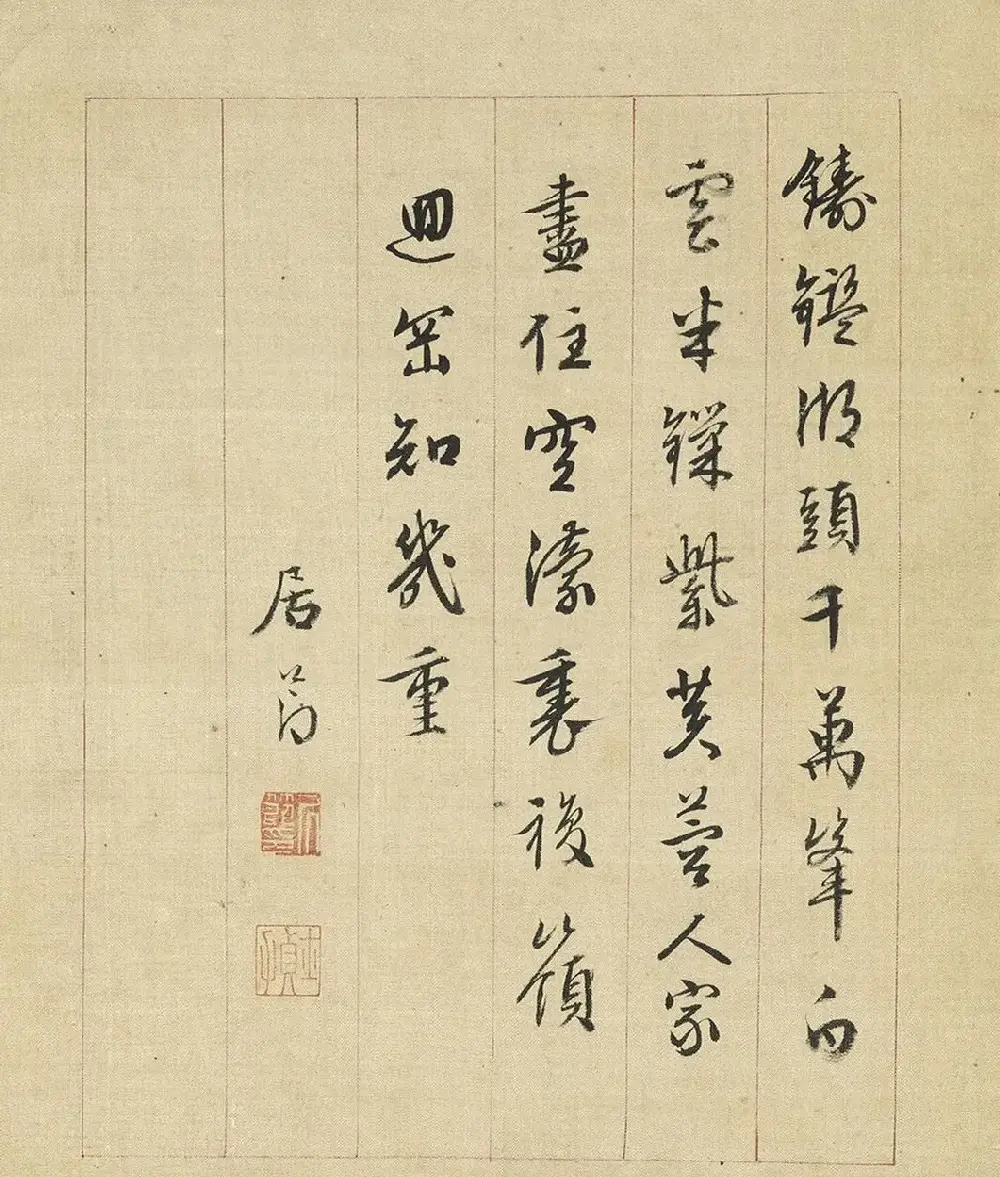 鑄鑑湖頭千萬峯白
雲半鏁紫芙蓉人家
盡住空濛裏複嶺
迴岡知幾重
居節